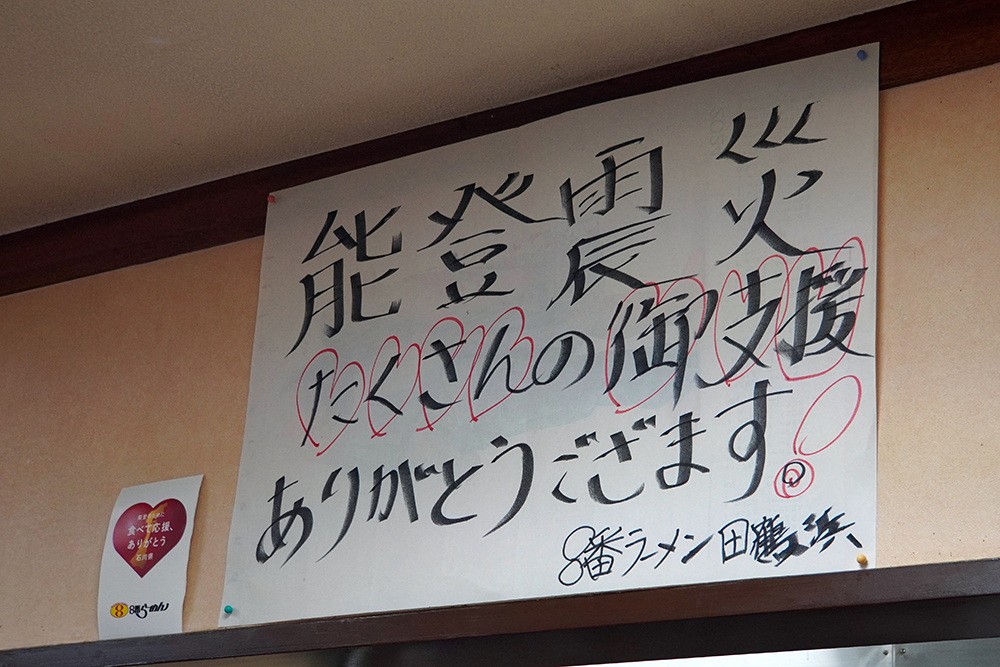 能登震災
たくさんの御支援
ありがとうございます。!
8番ラーメン田鶴浜
食べて応援、
ありがとう
石川県
8 8番らーめん